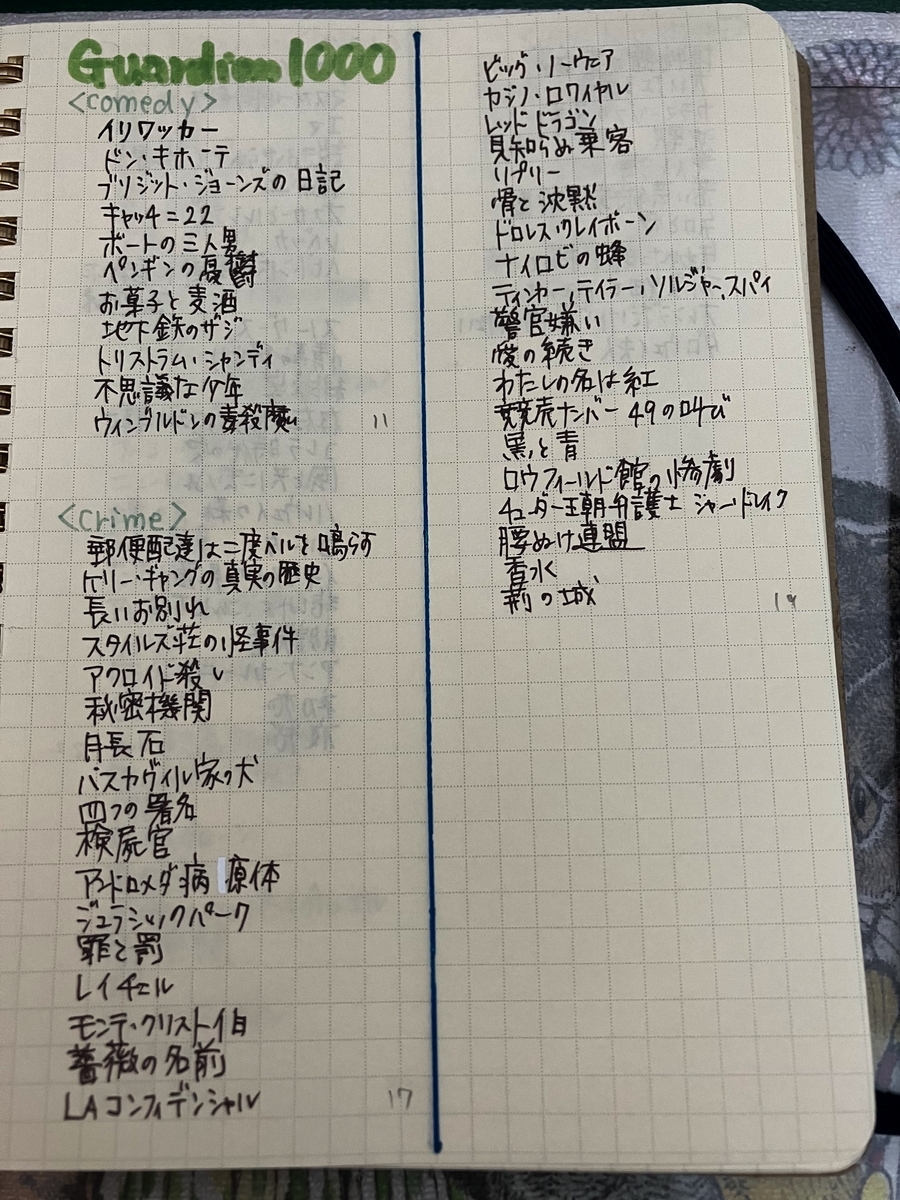 Guardian 1000
<comedy>
イリワッカー
ドン・キホーテ
ブリジット・ジョーンズの日記
キャッチ=22
ボートの三人男
ペンギンの憂鬱
お菓子と麦酒
地下鉄のザジ
トリストラム・シャンディ
不思議な少年
ウィンブルドンの毒殺魔
11
<crime>
郵便配達は二度ベルを鳴らす
ケリー・ギャングの真実の歴史
長いお別れ
スタイルズ荘の怪事件
アクロイド殺し
秘密機関
月長石
バスカヴィル家の犬
四つの署名
検屍官
アンドロメダ病原体
ジュラシックパーク
罪と罰
レイチェル
モンテ・クリスト伯
薔薇の名前
LAコンフィデンシャル
17
ビッグ・ノーウェア
カジノ・ロワイヤル
レッドドラゴン
見知らぬ乗客
リプリー
骨と沈黙
ドロレス・クレイボーン
ナイロビの蜂
ティンカー,テイラー,ソルジャー,スパイ
警官嫌い
愛の続き
わたしの名は紅
競売ナンバー49の叫び
黒と青
ロウフィールド館の惨劇
チューダー王朝弁護士 シャードレイク
腰ぬけ連盟
香水
荊の城
19